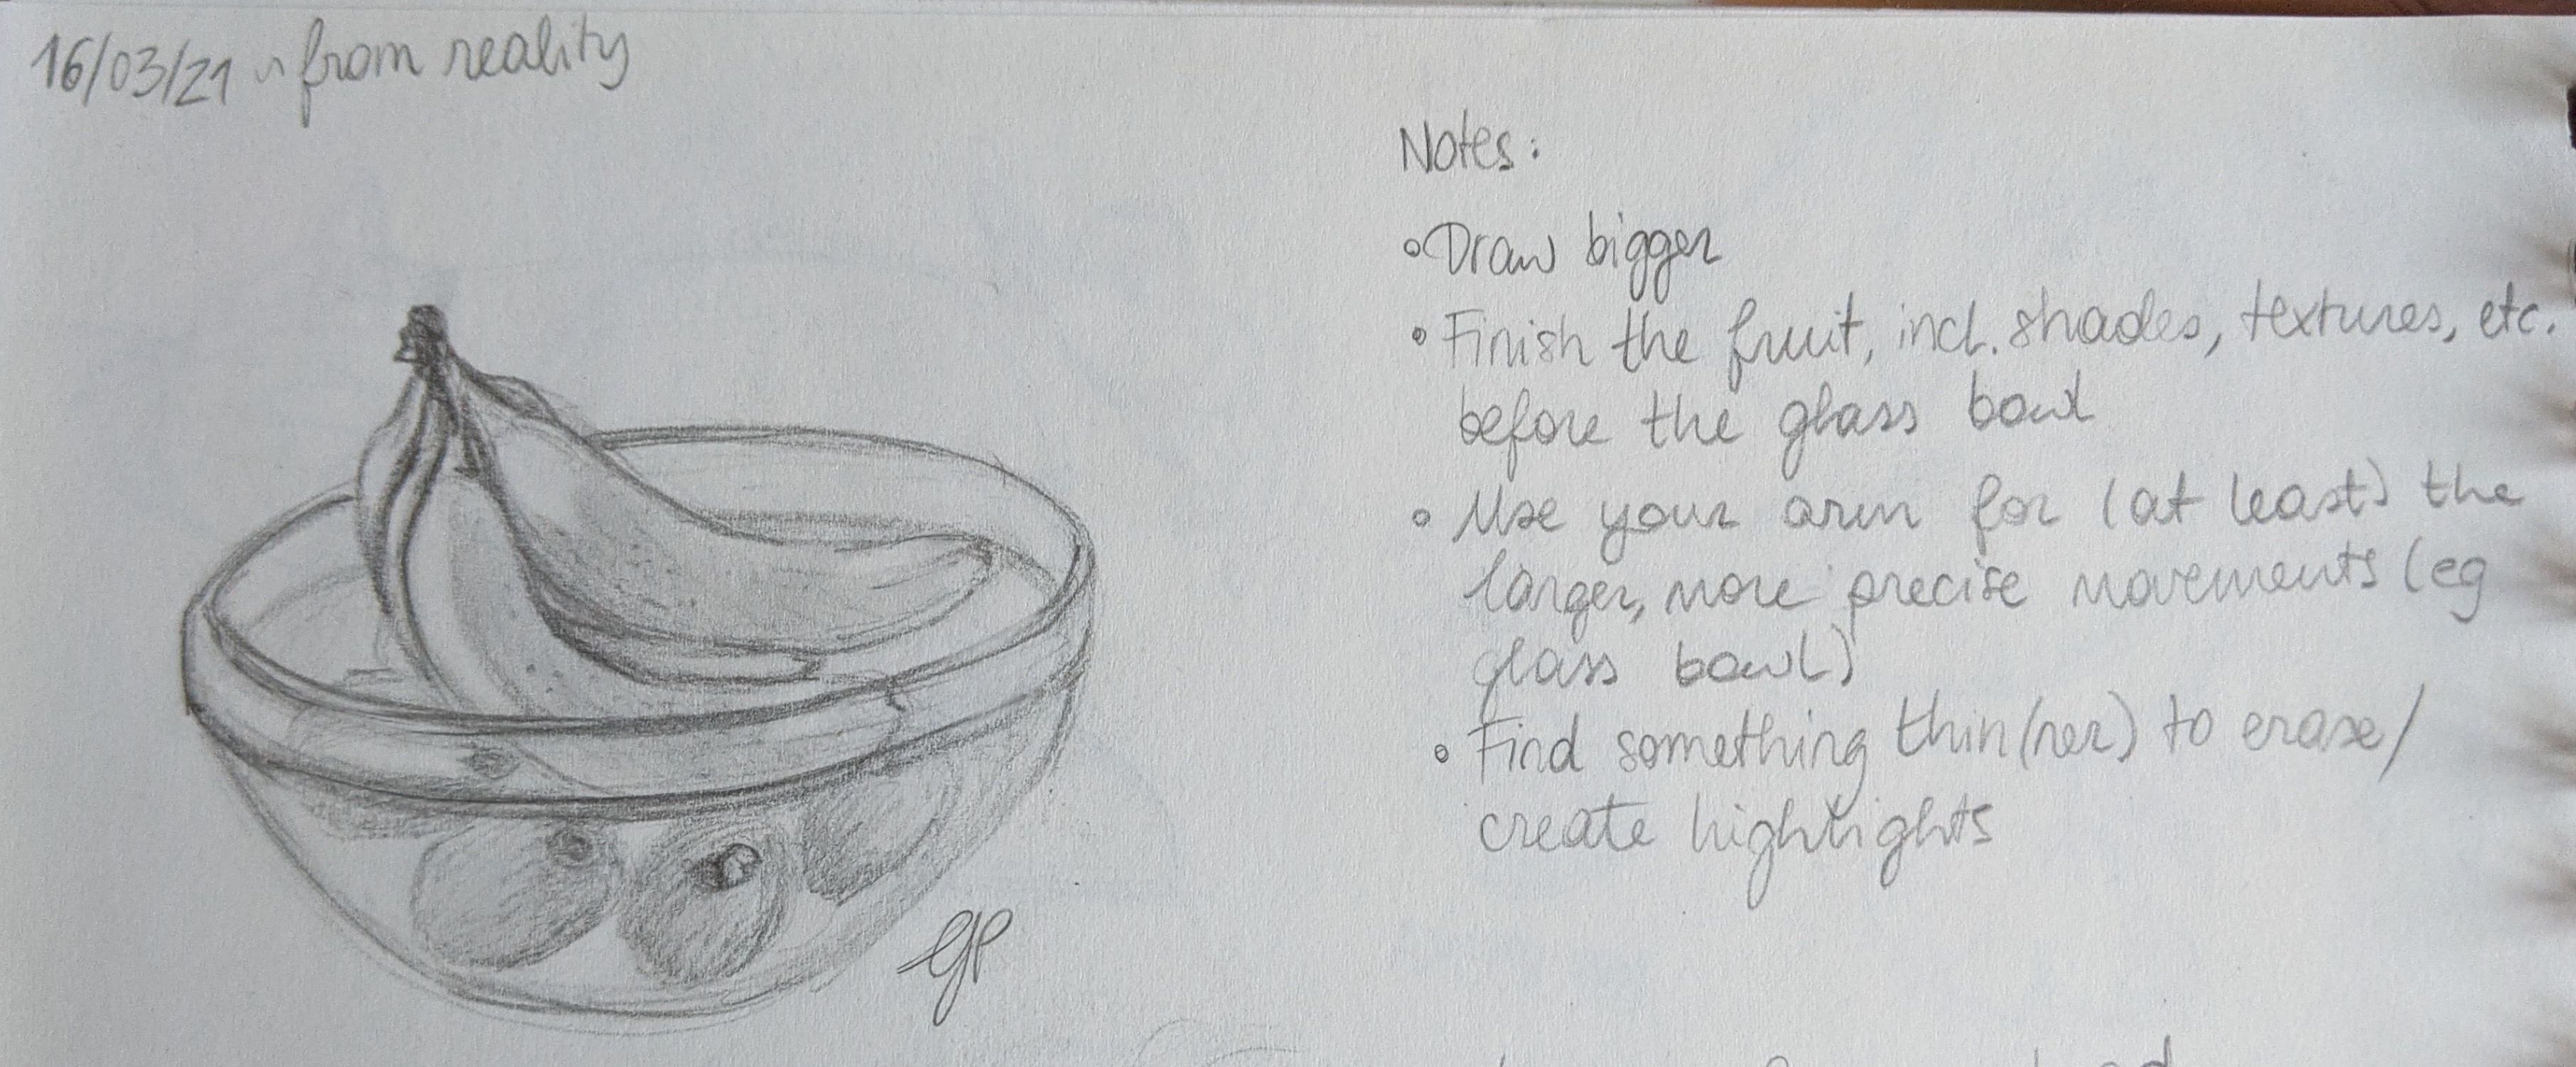 16/03/21 ~ from reality
Notes:
• Draw bigger
• Finish the fruit, incl. shades, textures, etc.
before the glass bowl
• Use your arm for (at least) the
larger, more precise movements (eg
glass bowl)
• Find something thin(ner) to erase/
create highlights
GP